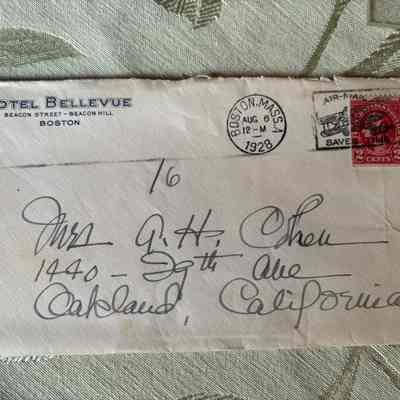 OTEL BELLEVUE
BEACON STREET - BEACON HILL
BOSTON
BOSTON, MASS.
AUG 6
12-M
1928
AIR-MAIL
SAVES TIME
2 CENTS 2
16
Mrs A. H. Cohen
1440 - 29th Ave
Oakland, California